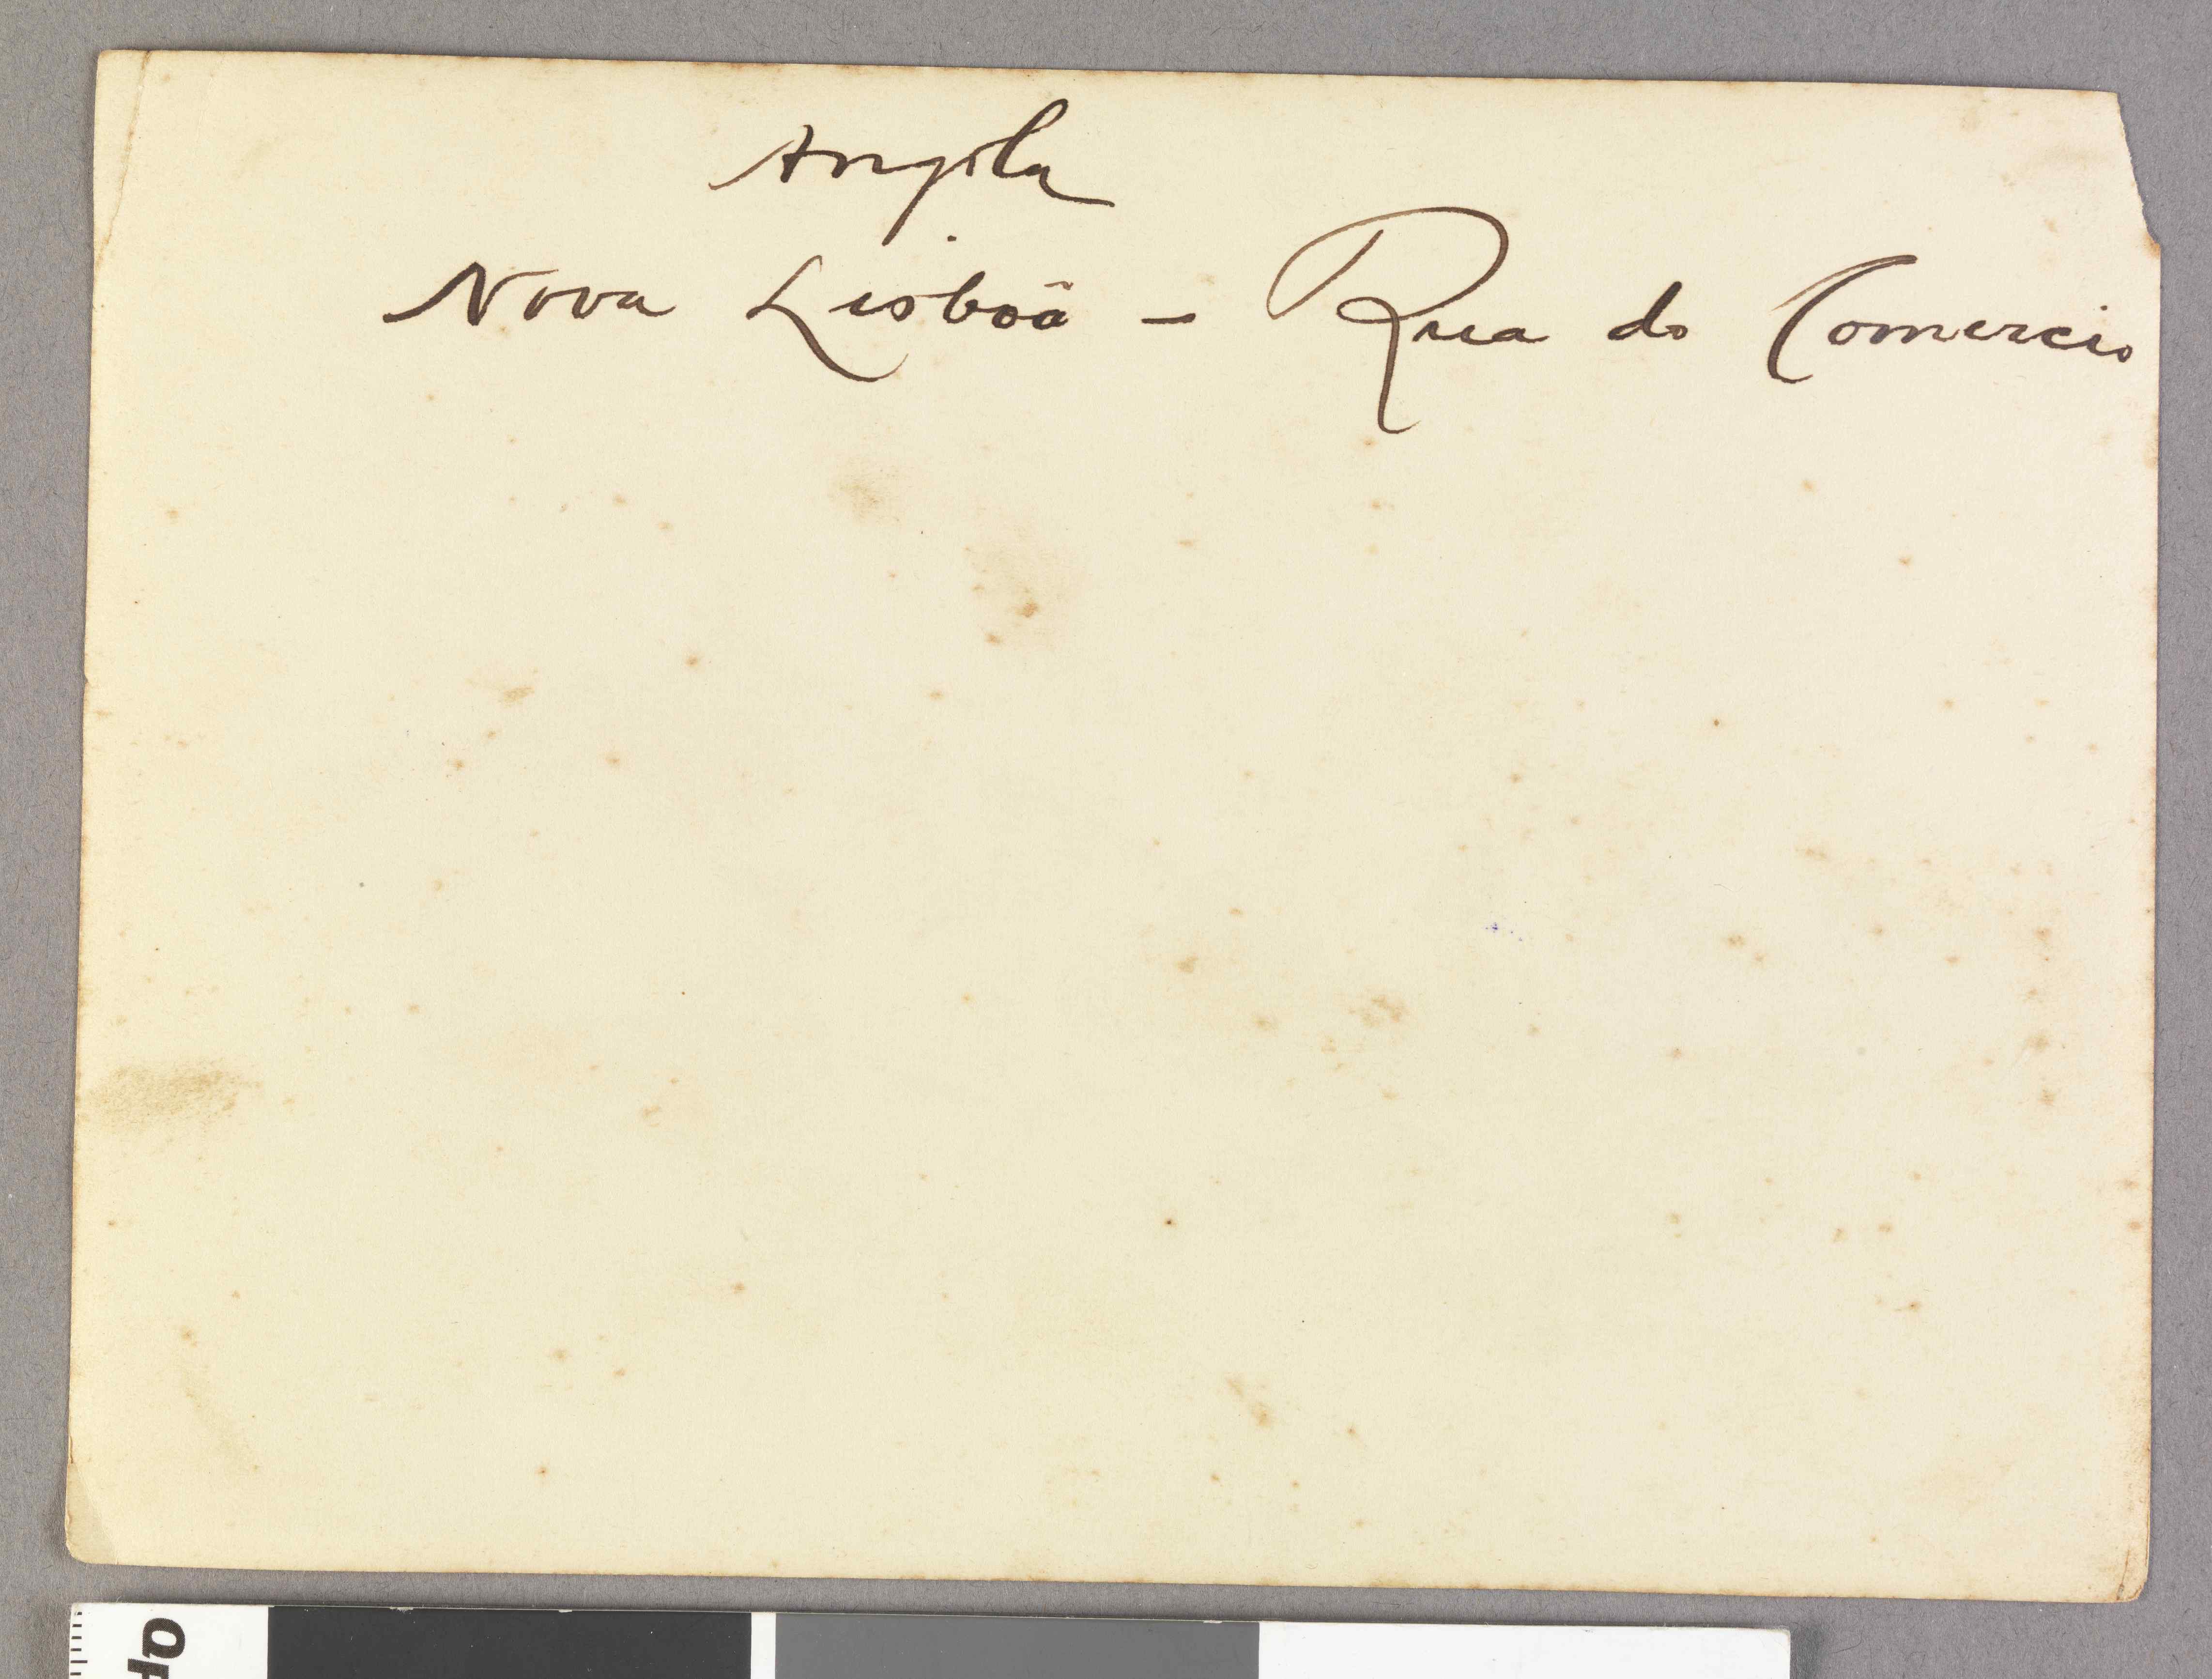 Angola
Nova Lisbôa - Rua do Comercio